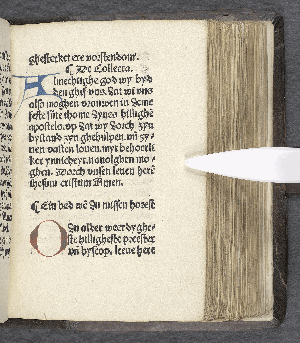 ghesterket ere vorstendom.
¶ De Collecta.
Almechtighe god wy byd
den ghif vns. dat wi vns
also moghen vrouwen in deme
feste sūte thome dynes hillighe
apostelo. vp dat wy dorch syn
bystand syn ghehulpen. vñ sy-
nen vasten louen. myt behorli
ker ynnicheyt. navolghen mo-
ghen. Dorch vnsen leuen herē
ihesum cristum Amen.
¶ Ein bed we du missen horest
O du alder weerdyghe-
ste hillighste preester
vñ byscop. leeue here